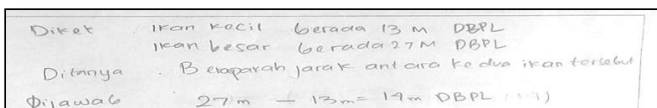 Diket Ikan kecil berada 13 M DBPL
Ikan besar berada 27 M DBPL
Ditanya . Berapakah jarak antara kedua ikan tersebut
Dijawab 27 m - 13 m = 14 m DBPL